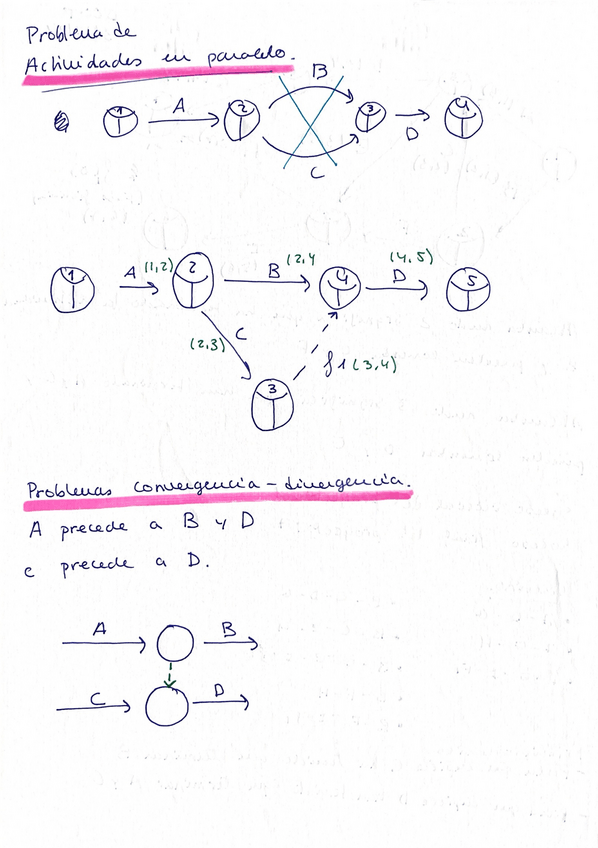 Problema de
Actividades en paralelo.
B
1 A 2 3 D 4
C
1 A (1,2) 2 B (2,4 4 (4,5) D 5
(2,3) C
f1 (3,4)
3
Problemas convergencia - divergencia.
A precede a B y D
c precede a D.
A B
C D